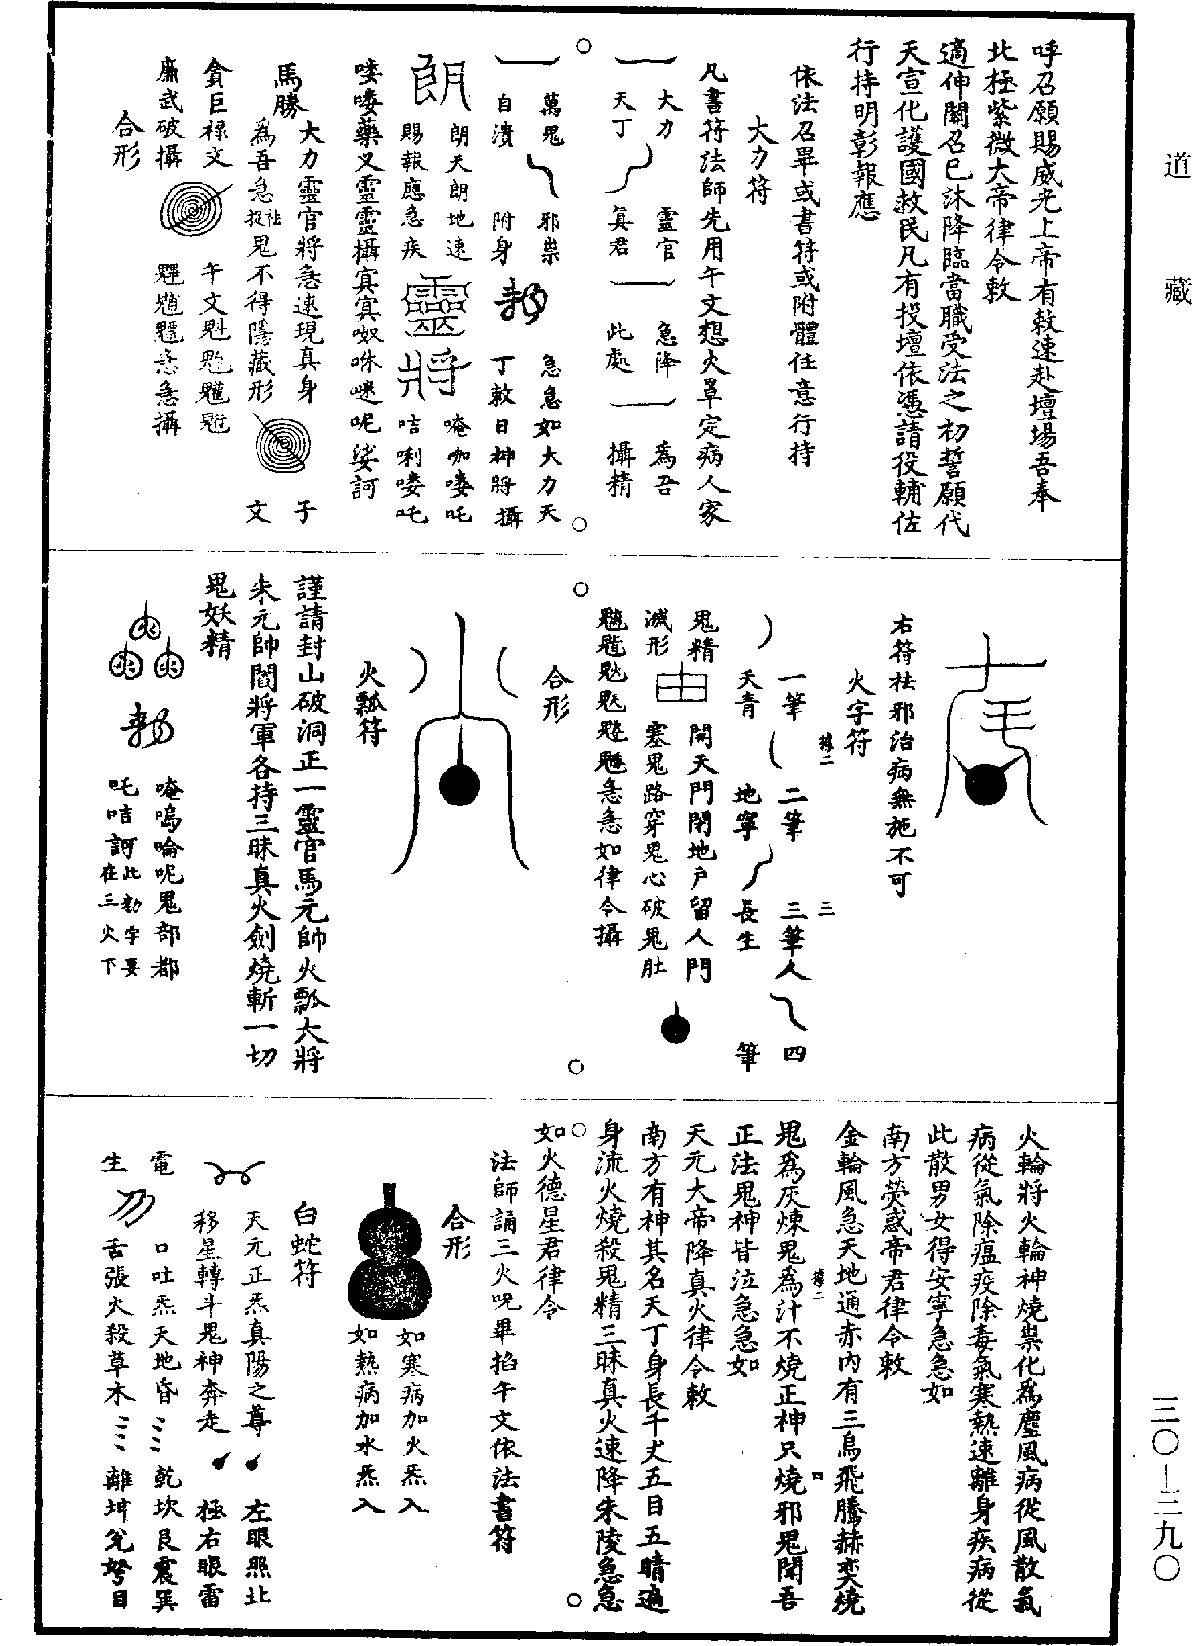 道藏
三〇—三九〇
呼召願賜威光上帝有敕速赴壇場吾奉
北極紫微大帝律令敕
適伸關召已沐降臨當職受法之初誓願代
天宣化護國救民凡有投壇依憑請役輔佐
行持明彰報應
依法召畢或書符或附體任意行持
大力符
凡書符法師先用午文想火罩定病人家
大力 靈官 急降 為吾
天丁 真君 此處 攝精
萬鬼 邪祟 急急如大力天
自潰 附身 丁敕日神將攝
朗 朗天朗地速 靈將 唵咖嘍吒
賜報應急疾 咭唎嘍吒
嘍嘍藥叉靈靈攝寘寘
大力靈官將急速現真身 子
馬勝 為吾急捉祛鬼不得隱藏形 文
貪巨祿文 午文
廉武破攝 急急攝
合形
右符祛邪治病無施不可
火字符
一筆 二筆 三筆人 四
天青 地寧 長生 筆
鬼精 開天門閉地戶留人門
滅形 塞鬼路穿鬼心破鬼肚
急急如律令攝
合形
火瓢符
謹請封山破洞正一靈官馬元帥火瓢大將
朱元帥閻將軍各持三昧真火劍燒斬一切
鬼妖精
唵嗚㖮呢鬼部都
吒咭訶此勑字要在三火下
火輪將火輪神燒祟化為塵風病從風散氣
病從氣除瘟疫除毒氣寒熱速離身疾病從
此散男女得安寧急急如
南方熒惑帝君律令敕
金輪風急天地通赤內有三鳥飛騰赫奕燒
鬼為灰煉鬼為汁不燒正神只燒邪鬼聞吾
正法鬼神皆泣急急如
天元大帝降真火律令敕
南方有神其名天丁身長千丈五目五睛遍
身流火燒殺鬼精三昧真火速降朱陵急急
如火德星君律令
法師誦三火呪畢掐午文依法書符
合形
如寒病加火炁入
如熱病加水炁入
白蛇符
天元正炁真陽之尊 左眼照北
移星轉斗鬼神奔走 極右眼雷
電 口吐炁天地昏 乾坎艮震巽
生 舌張火殺草木 離坤兌努目